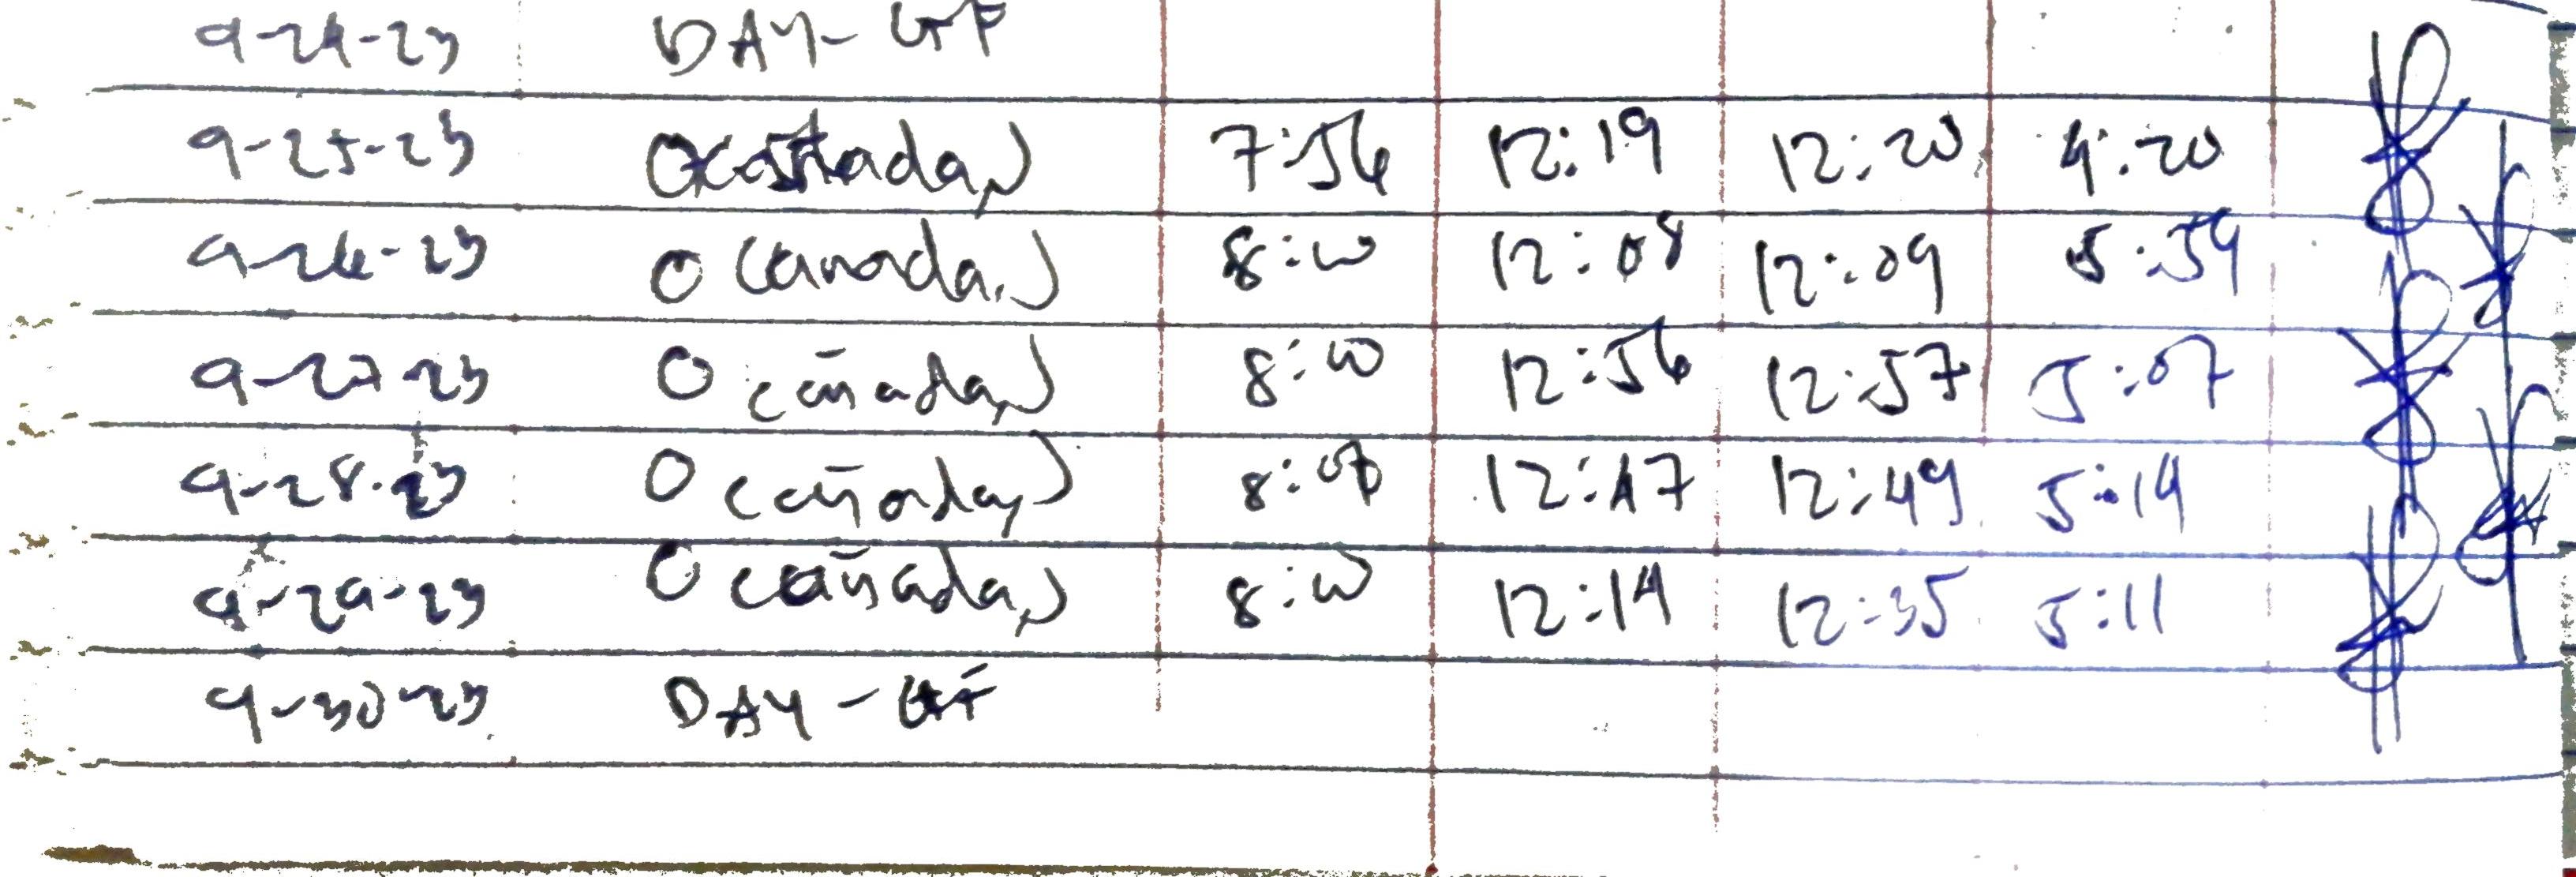 9-24-23 DAY-OFF
9-25-23 7:56 12:19 12:20 4:20
9-26-23 O Canada, J 8:00 12:08 12:09 5:59
9-27-23 O cañada, J 8:00 12:56 12:57 5:07
9-28-23 O cañada, J 8:07 12:47 12:49 5:14
9-29-23 O cañada, J 8:00 12:14 12:35 5:11
9-30-23 DAY-OFF